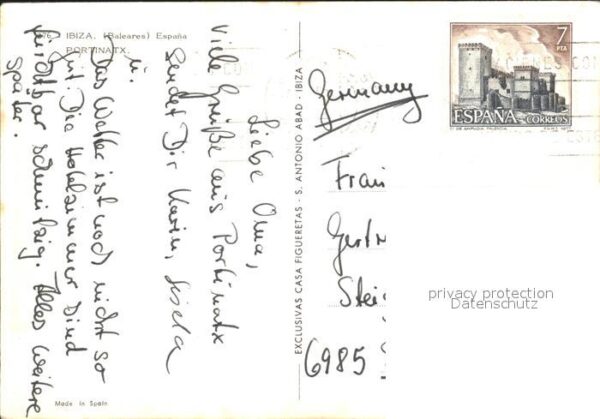 76 IBIZA. (Baleares) España
PORTINATX.
Liebe Oma,
Viele Grüße aus Portinatx
sendet Dir Karin, Gisela
u.
Das Wetter ist noch nicht so
gut. Die Hotelzimmer sind
furchtbar schmutzig. Alles weitere
später.
Made in Spain
EXCLUSIVAS CASA FIGUERETAS - S. ANTONIO ABAD - IBIZA
7
PTA
ESPAÑA
CORREOS
Germany
Frau
Gertr
Stei
6985
privacy protection
Datenschutz